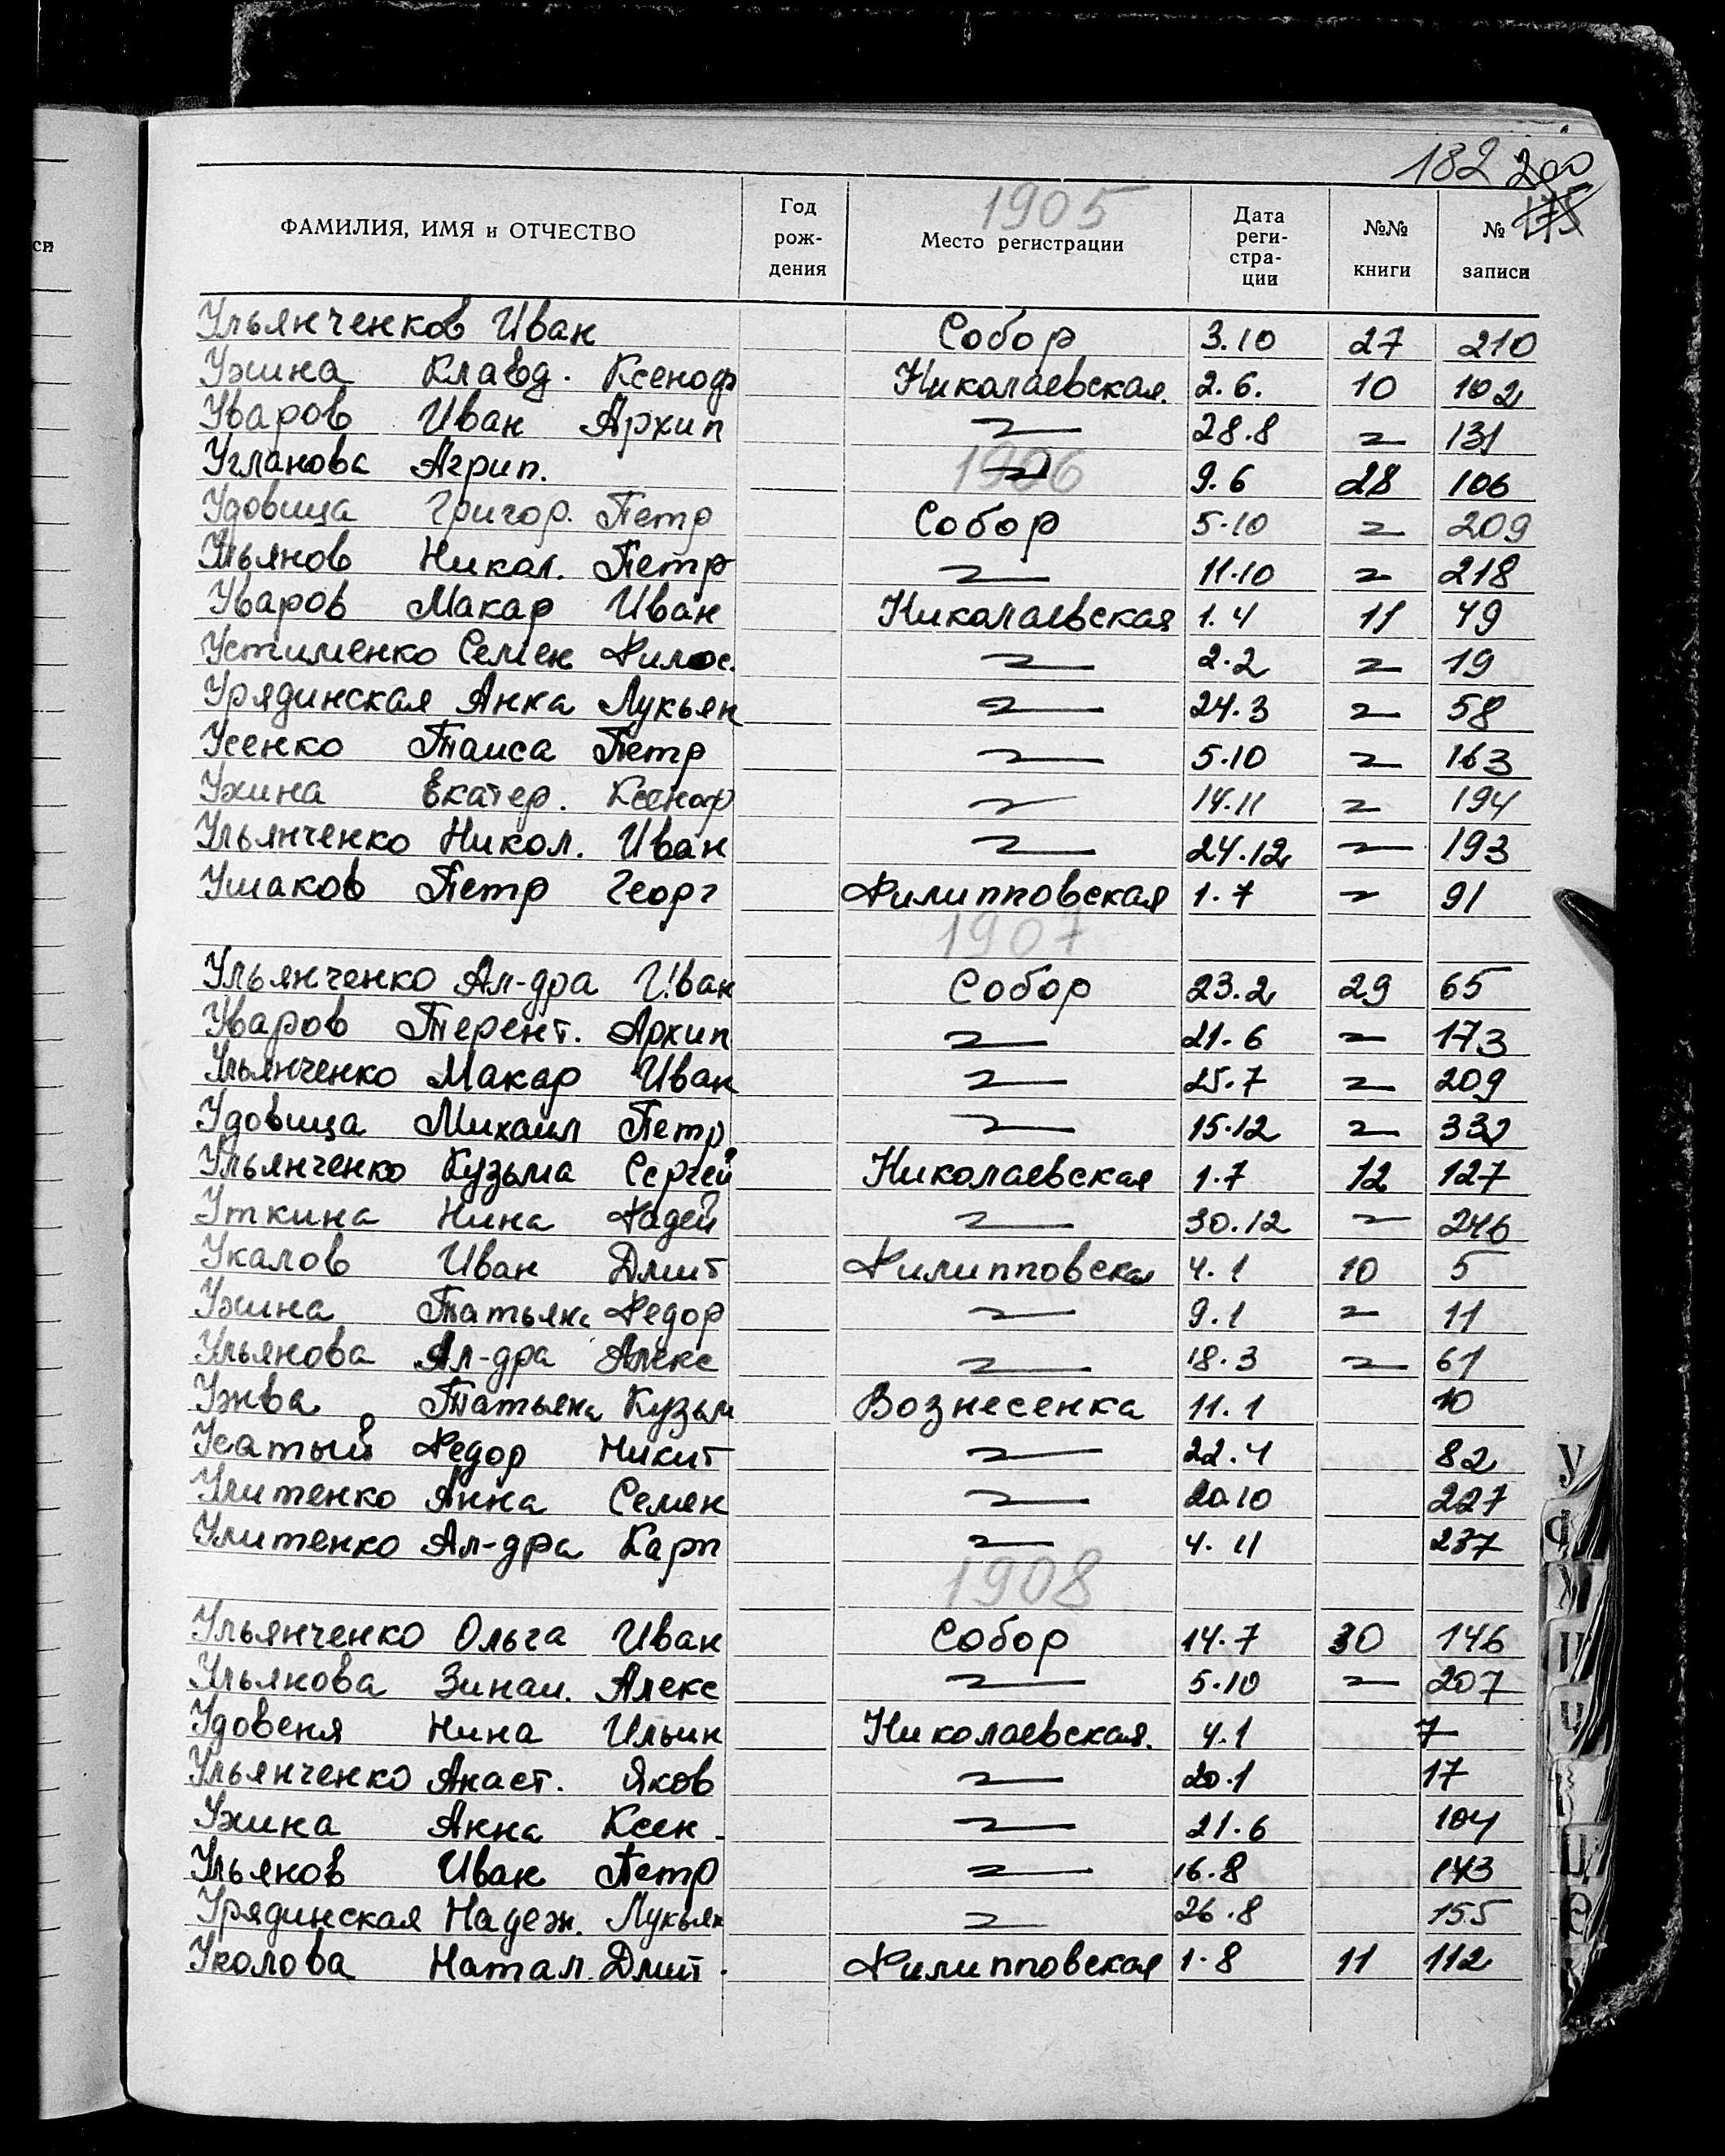 182 200
175
ФАМИЛИЯ, ИМЯ и ОТЧЕСТВО Год рож- дения 1905 Место регистрации Дата реги- стра- ции №№ книги № записи
Ульянченков Иван Собор 3.10 27 210
Ужина Клавд. Ксеноф Николаевская. 2.6. 10 102
Уваров Иван Архип —〃— 28.8 〃 131
Угланова Агрип. —〃— 9.6 28 106
1906
Удовица Григор. Петр Собор 5.10 〃 209
Ульянов Никол. Петр —〃— 11.10 〃 218
Уваров Макар Иван Николаевская 1.4 11 49
Устименко Семен Филос. —〃— 2.2 〃 19
Урядинская Анна Лукьян —〃— 24.3 〃 58
Усенко Таиса Петр —〃— 5.10 〃 163
Ужина Екатер. Ксеноф —〃— 14.11 〃 194
Ульянченко Никол. Иван —〃— 24.12 〃 193
Ушаков Петр Георг Филипповская 1.7 〃 91
1907
Ульянченко Ал-дра Иван Собор 23.2 29 65
Уваров Терент. Архип —〃— 21.6 〃 173
Ульянченко Макар Иван —〃— 25.7 〃 209
Удовица Михаил Петр —〃— 15.12 〃 332
Ульянченко Кузьма Сергей Николаевская 1.7 12 127
Уткина Нина Фадей —〃— 30.12 〃 246
Укалов Иван Дмит Филипповская 4.1 10 5
Ужина Татьяна Федор —〃— 9.1 〃 11
Ульянова Ал-дра Алекс —〃— 18.3 〃 61
Ужва Татьяна Кузьм Вознесенка 11.1 10
Усатый Федор Никит —〃— 22.4 82
Улитенко Анна Семен —〃— 20.10 227
Улитенко Ал-дра Карп —〃— 4.11 237
1908
Ульянченко Ольга Иван Собор 14.7 30 146
Ульянова Зинаи. Алекс —〃— 5.10 〃 207
Удовеня Нина Ильин Николаевская. 4.1 7
Ульянченко Анаст. Яков —〃— 20.1 17
Ужина Анна Ксен. —〃— 21.6 104
Ульянов Иван Петр —〃— 16.8 143
Урядинская Надеж. Лукьян —〃— 26.8 155
Уколова Натал. Дмит. Филипповская 1.8 11 112